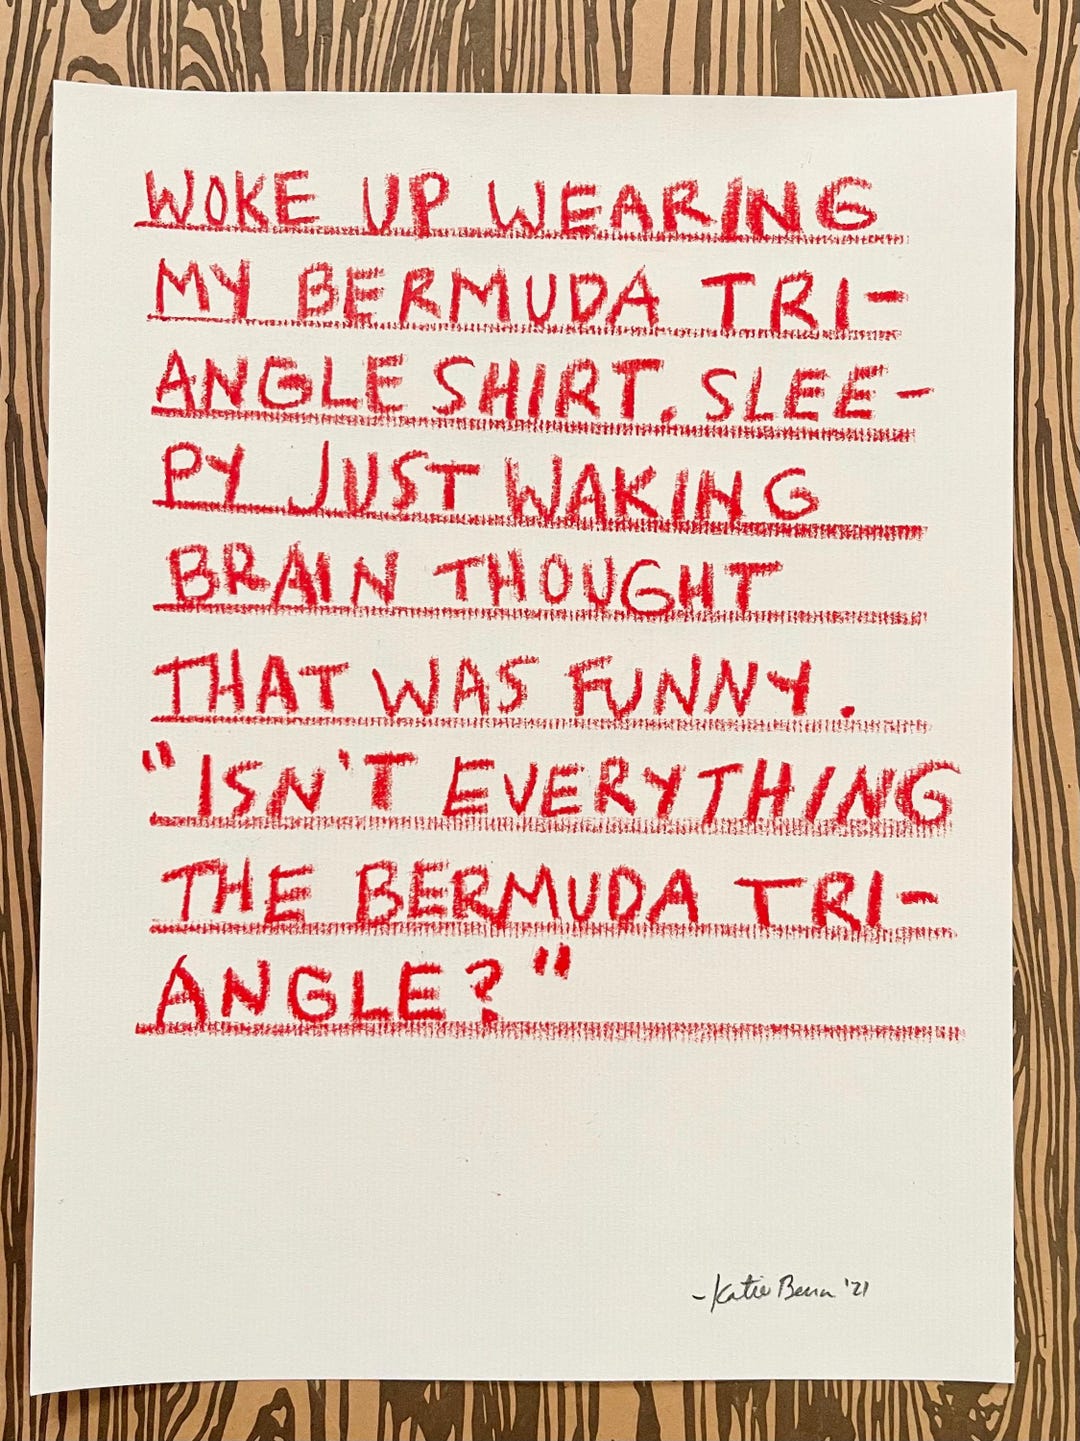 WOKE UP WEARING
MY BERMUDA TRI-
ANGLE SHIRT. SLEE-
PY JUST WAKING
BRAIN THOUGHT
THAT WAS FUNNY.
"ISN'T EVERYTHING
THE BERMUDA TRI-
ANGLE?"
-Katie Benn '21